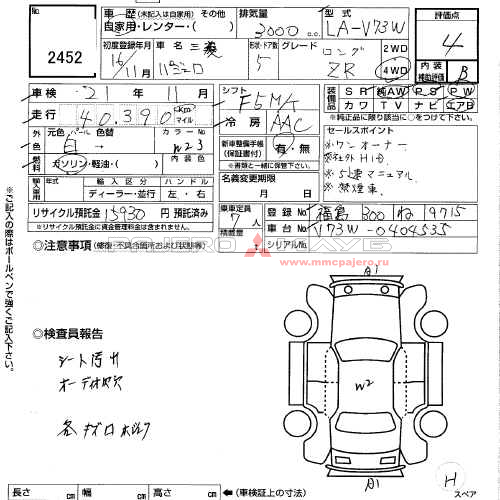 2452
車歴 (未記入は自家用) その他
自家用・レンター・( )
排気量 3000 cc
型式 LA-V73W
評価点 4
初度登録年月 16年 11月
車名 三菱 パジェロ
形状・ドア数 5
グレード ロング ZR
2WD
4WD
内装 補助評価 B
車検 21年 11月
シフト F5 M/T
装備品 SR 純AW PS PW
カワ TV ナビ エアB
※純正品に限り該当に○をつけて下さい
走行 40,390 km マイル
冷房 AAC
外色 元色 パール 色替 白→
カラーNo W23
内装色
燃料 ガソリン・軽油・( )
新車整備手帳 (保証書付) 有・無
※書類と一緒に保管して下さい。
セールスポイント
※ワンオーナー
※5速マニュアル
※禁煙車
輸入車用 年式 輸入区分 ハンドル
ディーラー・並行 左・右
名義変更期限 月 日
リサイクル預託金 13930 円 預託済み
※リサイクル預託金は資金管理料金は含みません。
乗車定員 7人
積載量
登録No 福島 300 ね 9715
車台No V73W-0404535
シリアルNo
◎注意事項 (修復・不具合箇所および状態等)
PAJERO
www.mmcpajero.ru
A1
W2
A1
◎検査員報告
シート汚れ
※ご記入の際はボールペンで強くご記入下さい。
長さ cm 幅 cm 高さ cm (車検証上の寸法)
H
スペア